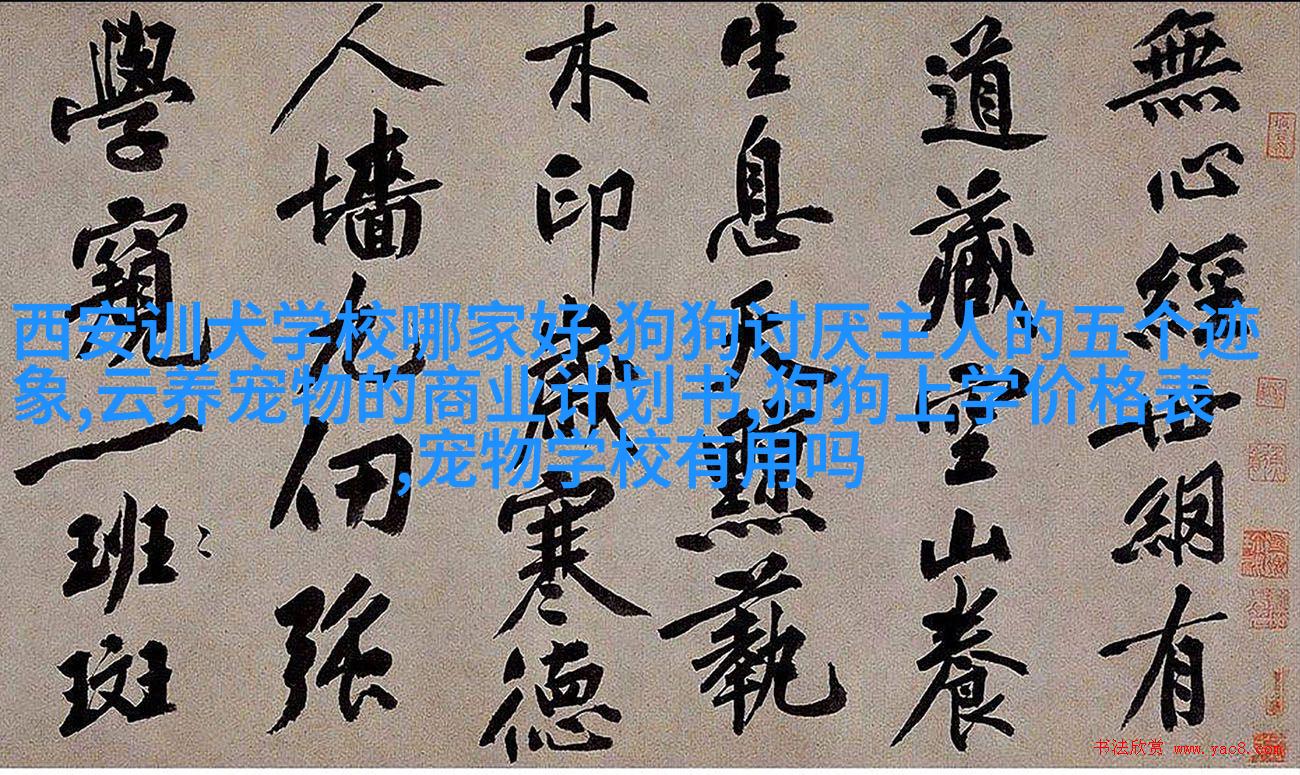 無心經世網有
道藏空山養
生息天黥藝
木印歲寒德
人墻九仞強
學窺一班斑
西安训犬学校哪家好,狗狗讨厌主人的五个迹
象,云养宠物的商业计划书,狗狗上学价格表
,宠物学校有用吗
书法欣赏 www.yac8.com